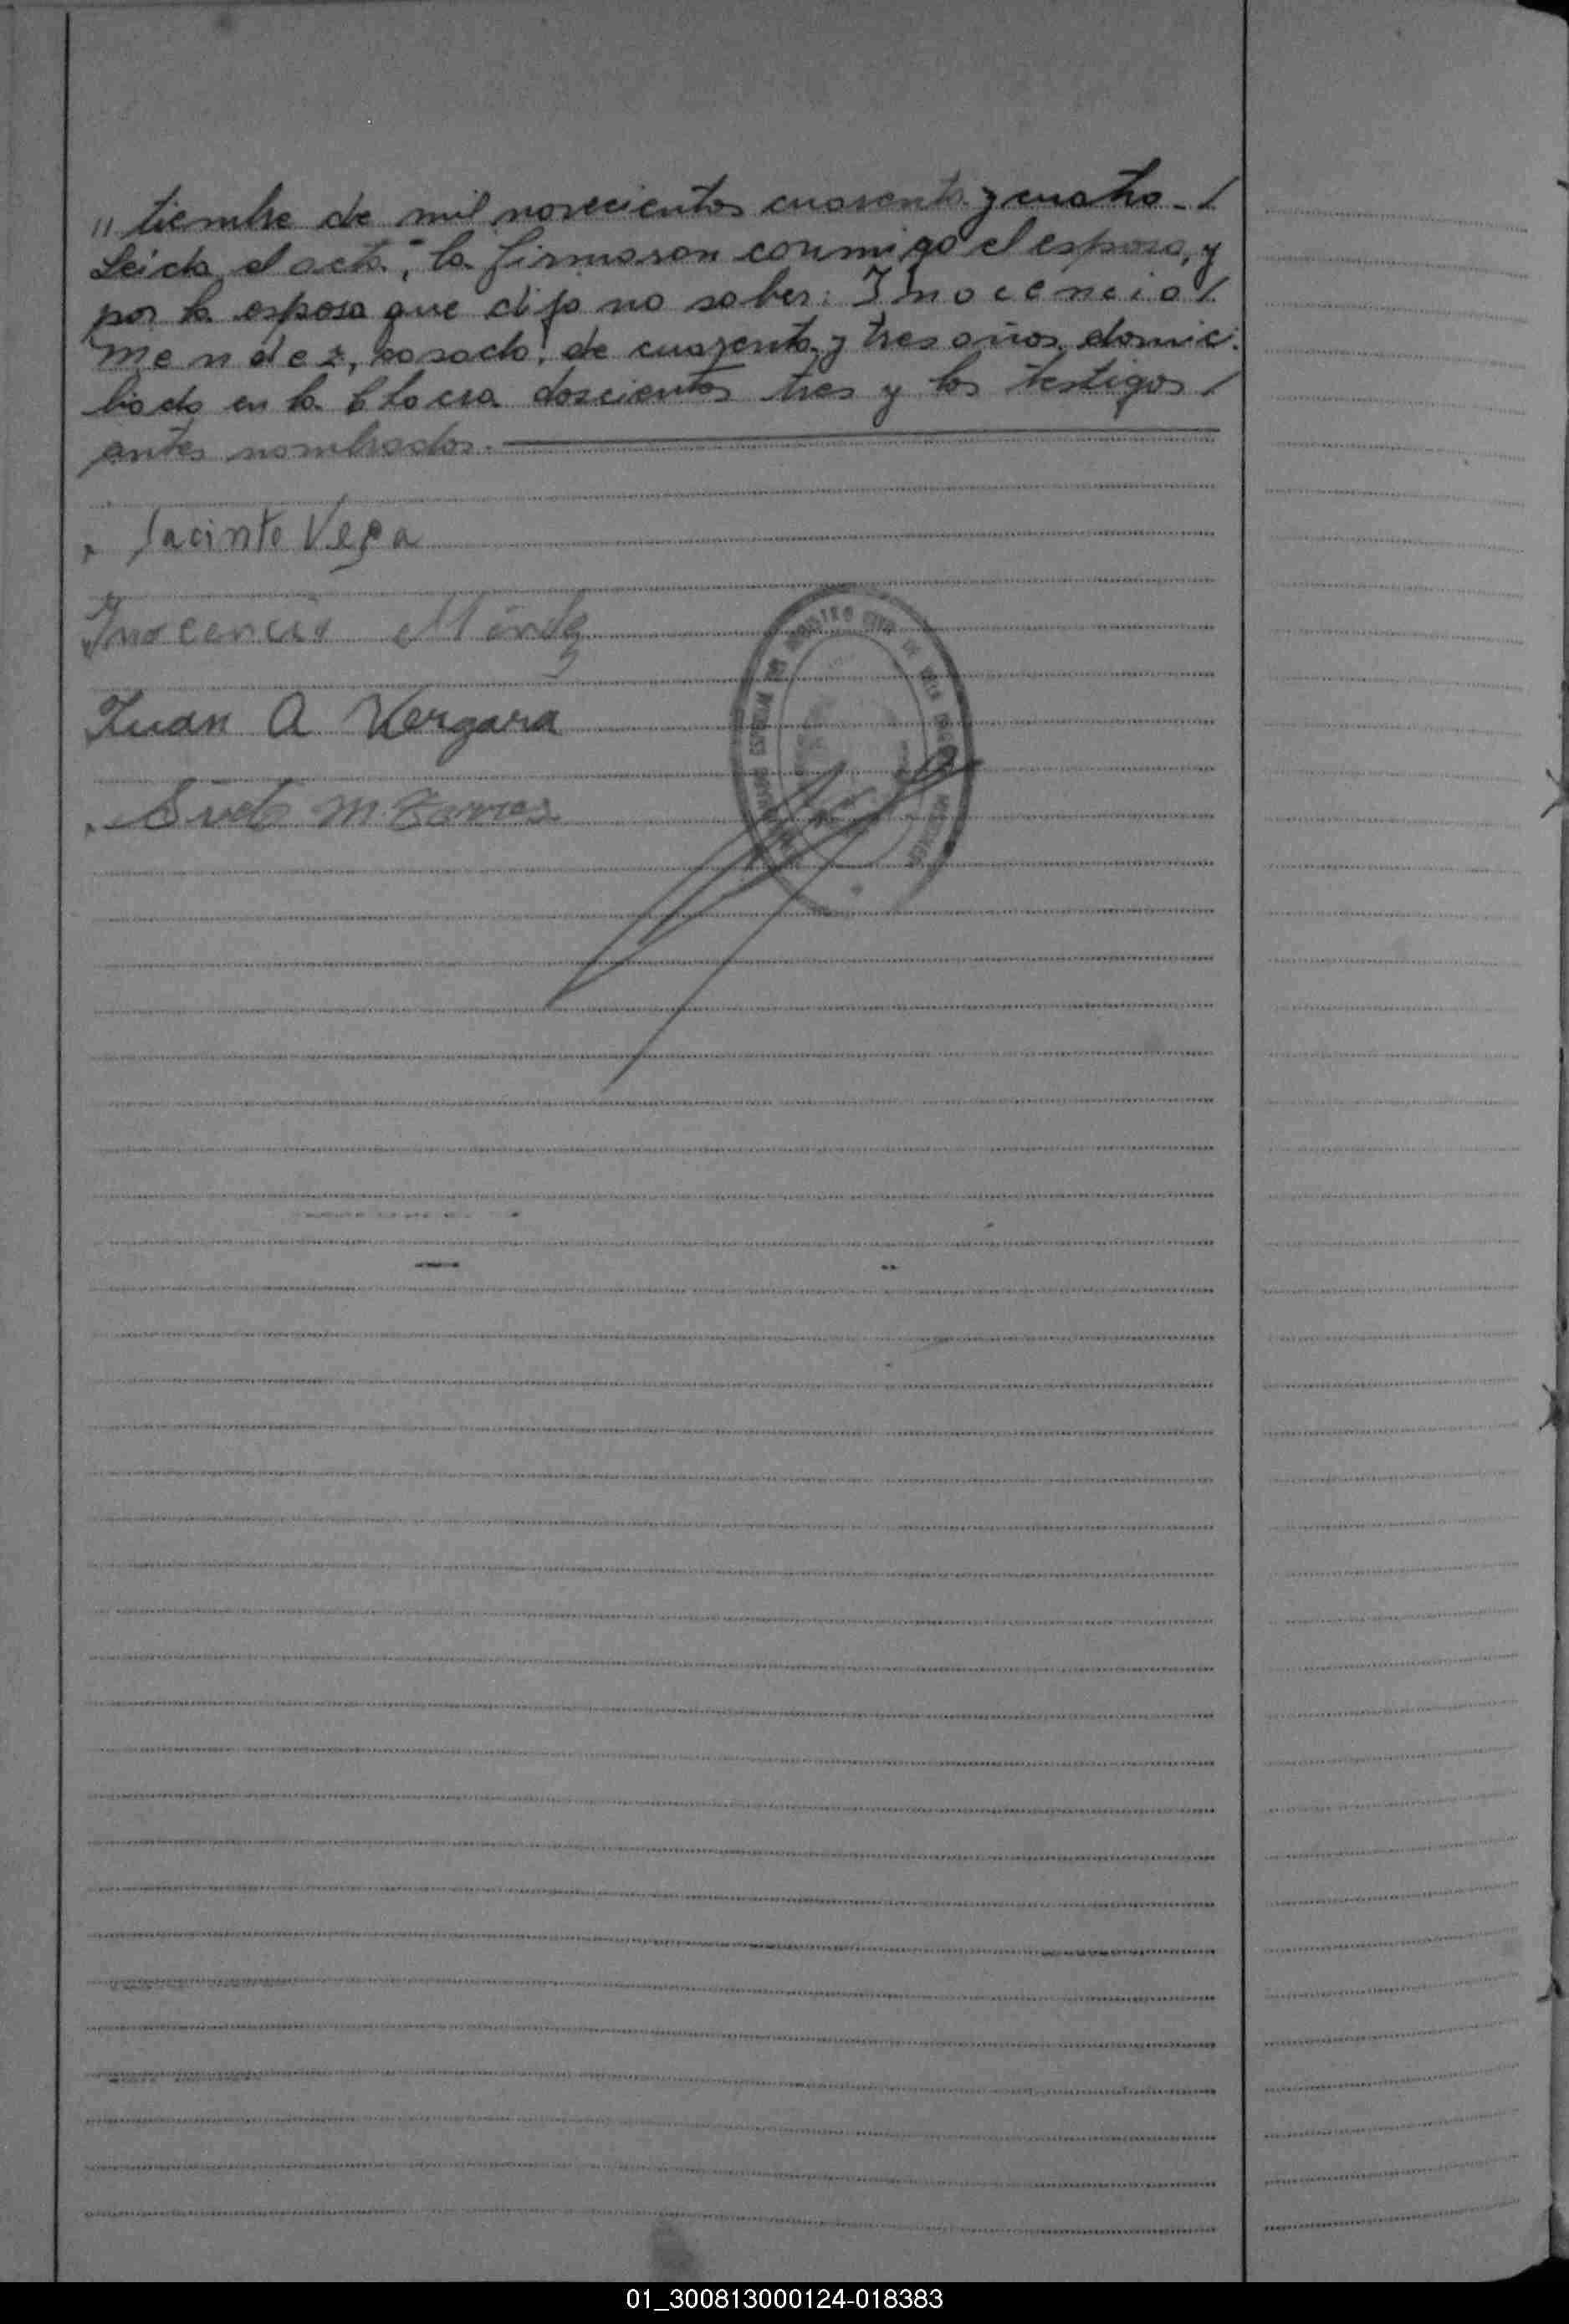 " tiembre de mil novecientos cuarenta y cuatro - /
Leida el acta, la firmaron conmigo el esposo, y
por la esposa que dijo no saber: Inocencio /
Mendez, casado, de cuarenta y tres años, domici
liado en la doscientos tres y los testigos /
antes nombrados.
Jacinto Vega
Inocencio Méndez
Juan A Vergara
M.
REGISTRO CIVIL DE
01_300813000124-018383